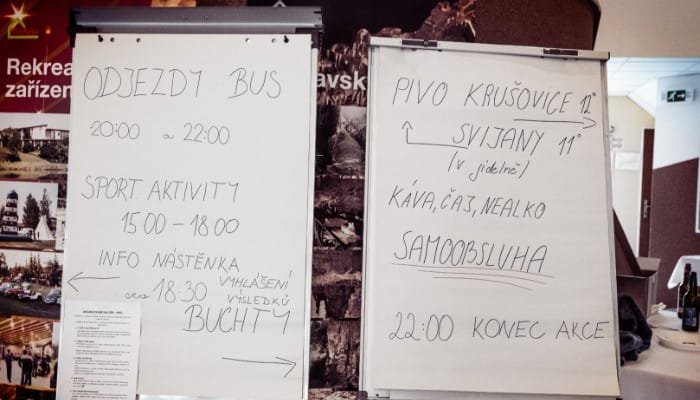 Rekrea
zařízen
ODJEZDY BUS
20:00 a 22:00
SPORT AKTIVITY
15 00 – 18 00
INFO NÁSTĚNKA
cca 18:30 VYHLÁŠENÍ
VÝSLEDKŮ
BUCHTY
avsk
PIVO KRUŠOVICE 12°
SVIJANY 11°
(v jídelně)
KÁVA, ČAJ, NEALKO
SAMOOBSLUHA
22:00 KONEC AKCE